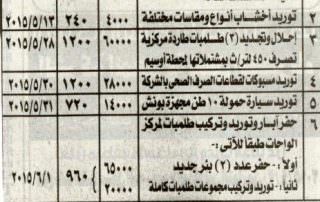 ٢ توريد أخشاب أنواع ومقاسات مختلفة ٤٠٠٠ ٢٤٠ ٢٠١٥/٥/١٣
٣ إحلال وتجديد (٣) طلمبات طاردة مركزية ٦٠٠٠٠ ١٢٠٠ ٢٠١٥/٥/٢٨
تصرف ٤٥٠ لتر/ث بمشتملاتها لمحطة أوسيم
٤ توريد مسبوكات لقطاعات الصرف الصحى بالشركة ٢٨٠٠٠ ١٢٠٠ ٢٠١٥/٥/٣٠
٥ توريد سيارة حمولة ١٠ طن مجهزة بونش ١٤٠٠٠ ٧٢٠ ٢٠١٥/٥/٣١
٦ حفر آبار وتوريد وتركيب طلمبات لمركز
الواحات طبقاً للآتى :-
أولاً :- حفر عدد (٢) بئر جديد ٦٥٠٠٠ ٩٦٠ ٢٠١٥/٦/١
ثانياً :- توريد وتركيب مجموعات طلمبات كاملة ٢٠٠٠٠